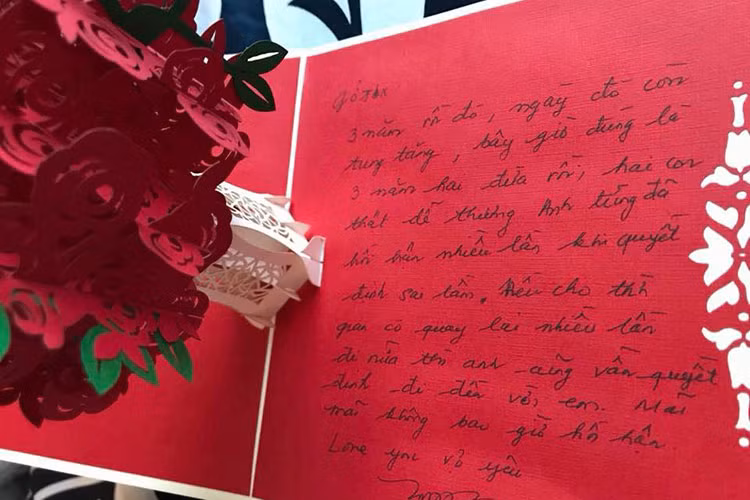 3 năm rồi đó, ngày đó còn
tung tăng, bây giờ đúng là
3 năm hai đứa rồi, hai con
thật dễ thương Anh từng đã
hối hận nhiều lần khi quyết
định sai lầm. Nếu cho thời
gian có quay lại nhiều lần
đi nữa thì anh cũng vẫn quyết
định đi đến với em. Mãi
mãi không bao giờ hối hận
Love you vợ yêu